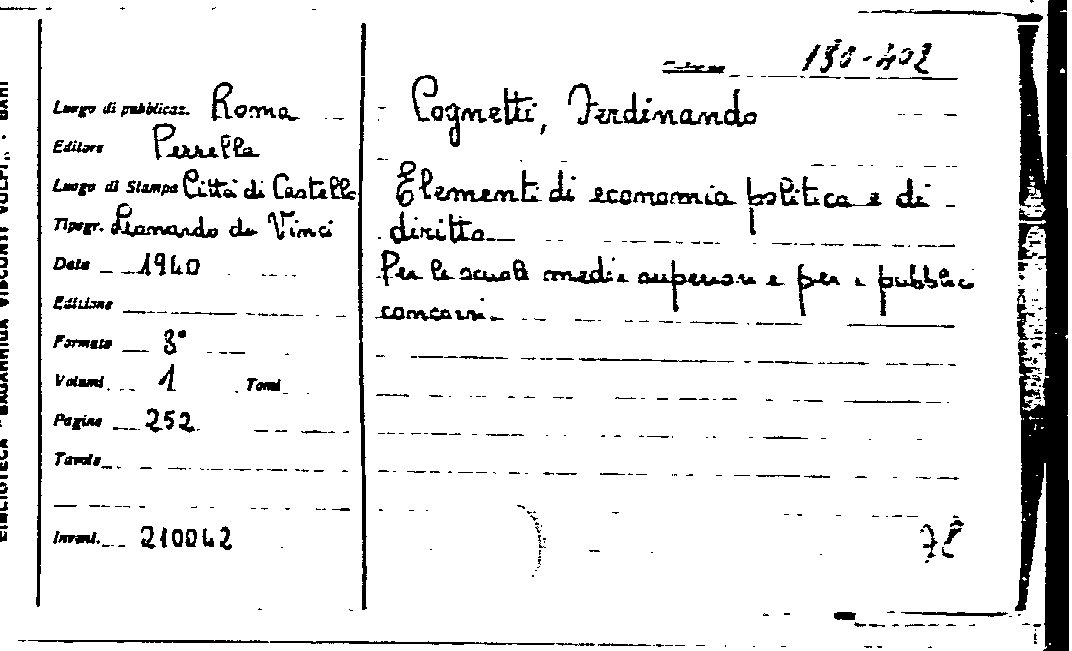 BIBLIOTECA "SAGARRIGA VISCONTI VOLPI" - BARI
130-402
Luogo di pubblicaz. Roma
Editore Perrella
Luogo di Stampa Città di Castello
Tipogr. Leonardo da Vinci
Data 1940
Edizione
Formato 8°
Volumi 1 Tomi
Pagine 252
Tavole
Invent. 210042
Cognetti, Ferdinando
Elementi di economia politica e di
diritto
Per le scuole medie superiori e per i pubblici
concorsi.